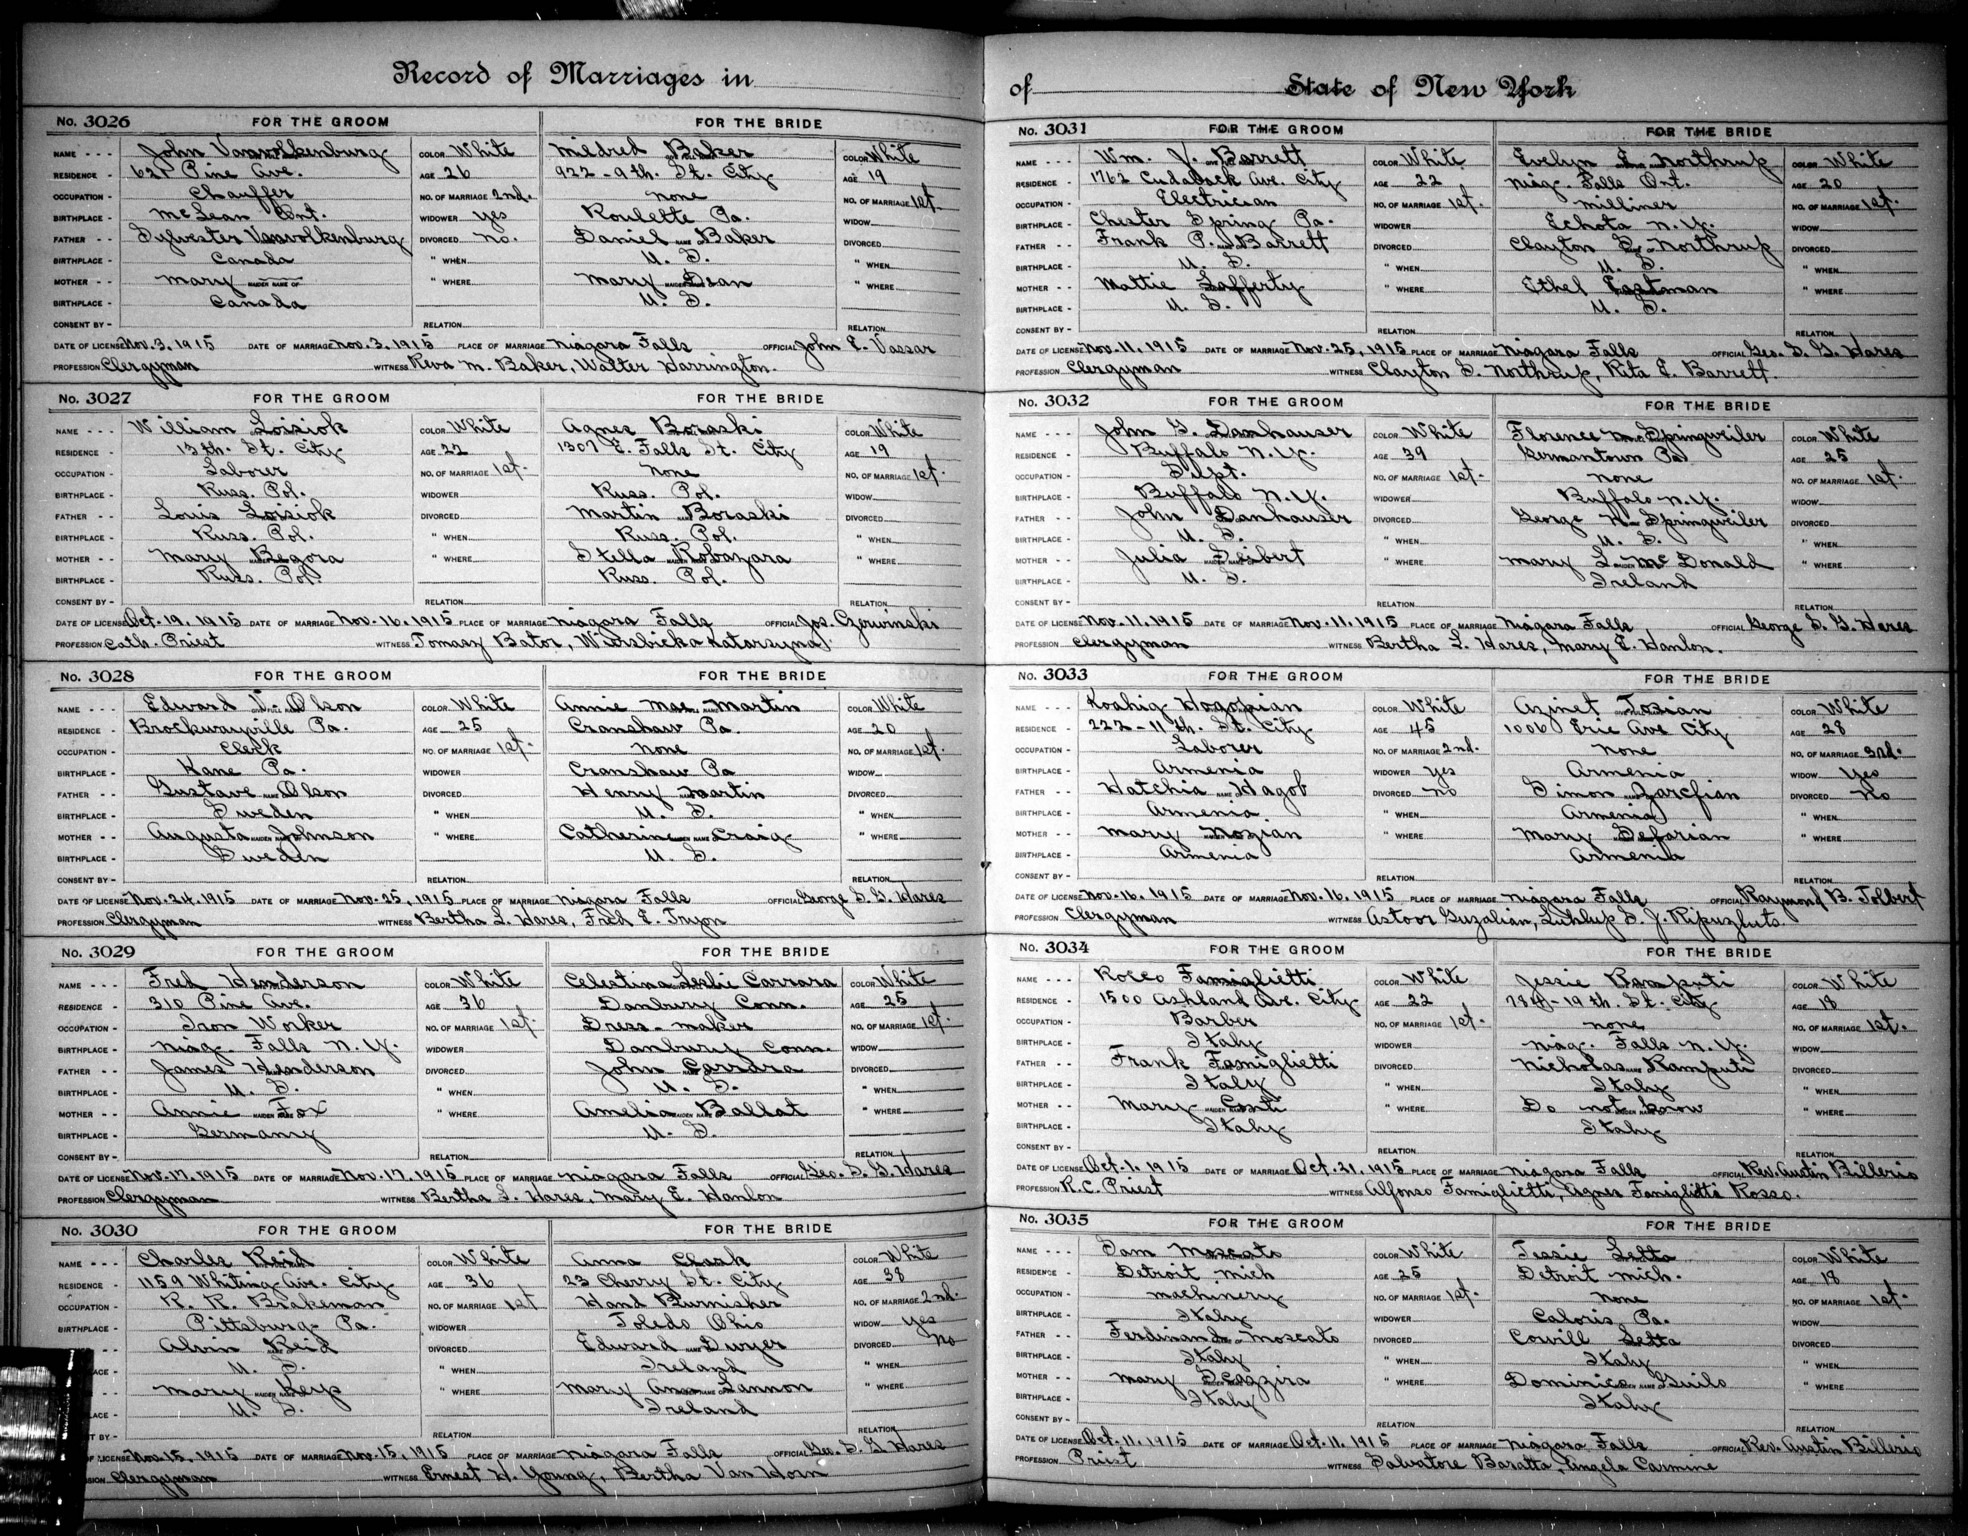 Record of Marriages in
No. 3026 FOR THE GROOM FOR THE BRIDE
NAME John Vanvolkenburg COLOR White Mildred Baker COLOR White
RESIDENCE Pine Ave. AGE 26 922-9th. St. City AGE 19
OCCUPATION Chauffer NO. OF MARRIAGE 2nd. none NO. OF MARRIAGE 1st.
BIRTHPLACE McLean Ont. WIDOWER yes Roulette Pa. WIDOW
FATHER Sylvester Vanvolkenburg DIVORCED no. Daniel Baker DIVORCED
BIRTHPLACE Canada " WHEN U. S. " WHEN
MOTHER Mary MAIDEN NAME OF " WHERE Mary Dean " WHERE
BIRTHPLACE Canada U. S.
CONSENT BY RELATION RELATION
DATE OF LICENSE Nov. 3, 1915 DATE OF MARRIAGE Nov. 3, 1915 PLACE OF MARRIAGE Niagara Falls OFFICIAL John E. Vassar
PROFESSION Clergyman WITNESS Reva M. Baker, Walter Harrington.
No. 3027 FOR THE GROOM FOR THE BRIDE
NAME William Loisiok COLOR White Agnes Boraski COLOR White
RESIDENCE 13th. St. City AGE 22 1307 E. Falls St. City AGE 19
OCCUPATION Laborer NO. OF MARRIAGE 1st. None NO. OF MARRIAGE 1st.
BIRTHPLACE Russ. Pol. WIDOWER Russ. Pol. WIDOW
FATHER Louis Loisiok DIVORCED Martin Boraski DIVORCED
BIRTHPLACE Russ. Pol. " WHEN Russ. Pol. " WHEN
MOTHER Mary Begora " WHERE Stella Robazara " WHERE
BIRTHPLACE Russ. Pol. Russ. Pol.
CONSENT BY RELATION RELATION
DATE OF LICENSE Oct. 19, 1915 DATE OF MARRIAGE Nov. 16, 1915 PLACE OF MARRIAGE Niagara Falls OFFICIAL Jos. Czerwinski
PROFESSION Cath. Priest WITNESS Tomasz Bator, Wiersbicka Katarsyna.
No. 3028 FOR THE GROOM FOR THE BRIDE
NAME Edward V. Olson COLOR White Annie Mae Martin COLOR White
RESIDENCE Brockwayville Pa. AGE 25 Cranshaw Pa. AGE 20
OCCUPATION Clerk NO. OF MARRIAGE 1st. None NO. OF MARRIAGE 1st.
BIRTHPLACE Kane Pa. WIDOWER Cranshaw Pa WIDOW
FATHER Gustave Olson DIVORCED Henry Martin DIVORCED
BIRTHPLACE Sweden " WHEN U. S. " WHEN
MOTHER Augusta Johnson " WHERE Catherine Craig " WHERE
BIRTHPLACE Sweden U. S.
CONSENT BY RELATION RELATION
DATE OF LICENSE Nov. 24, 1915 DATE OF MARRIAGE Nov. 25, 1915 PLACE OF MARRIAGE Niagara Falls OFFICIAL George S. G. Hares
PROFESSION Clergyman WITNESS Bertha L. Hares, Fred E. Tryon
No. 3029 FOR THE GROOM FOR THE BRIDE
NAME Fred Henderson COLOR White Celestina Leslie Carrara COLOR White
RESIDENCE 310 Pine Ave. AGE 36 Danbury Conn. AGE 25
OCCUPATION Iron Worker NO. OF MARRIAGE 1st. Dress-maker NO. OF MARRIAGE 1st.
BIRTHPLACE Niag. Falls N. Y. WIDOWER Danbury Conn. WIDOW
FATHER James Henderson DIVORCED John Carrara DIVORCED
BIRTHPLACE U. S. " WHEN U. S. " WHEN
MOTHER Annie Fox " WHERE Amelia Ballat " WHERE
BIRTHPLACE Germany U. S.
CONSENT BY RELATION RELATION
DATE OF LICENSE Nov. 17, 1915 DATE OF MARRIAGE Nov. 17, 1915 PLACE OF MARRIAGE Niagara Falls OFFICIAL Geo. S. G. Hares
PROFESSION Clergyman WITNESS Bertha L. Hares, Mary E. Hanlon
No. 3030 FOR THE GROOM FOR THE BRIDE
NAME Charles Reid COLOR White Anna Clark COLOR White
RESIDENCE 1159 Whiting Ave. City AGE 36 23 Cherry St. City AGE 38
OCCUPATION R. R. Brakeman NO. OF MARRIAGE 1st Hand Burnisher NO. OF MARRIAGE 2nd.
BIRTHPLACE Pittsburg Pa. WIDOWER Toledo Ohio WIDOW yes
Alvin Reid DIVORCED Edward Dwyer DIVORCED no
U. S. " WHEN Ireland " WHEN
Mary Keys " WHERE Mary Ann Lannon " WHERE
U. S. Ireland
RELATION RELATION
Nov. 15, 1915 DATE OF MARRIAGE Nov. 15, 1915 PLACE OF MARRIAGE Niagara Falls OFFICIAL Geo. S. G. Hares
Clergyman WITNESS Ernest H. Young, Bertha Van Horn
of State of New York
No. 3031 FOR THE GROOM FOR THE BRIDE
NAME Wm. J. Barrett COLOR White Evelyn Northrup COLOR White
RESIDENCE 1762 Cudaback Ave. City AGE 22 Niag. Falls Ont. AGE 20
OCCUPATION Electrician NO. OF MARRIAGE 1st. Milliner NO. OF MARRIAGE 1st.
BIRTHPLACE Chester Spring Pa. WIDOWER Echota N. Y. WIDOW
FATHER Frank P. Barrett DIVORCED Clayton S. Northrup DIVORCED
BIRTHPLACE U. S. " WHEN U. S. " WHEN
MOTHER Mattie Lafferty " WHERE Ethel Eastman " WHERE
BIRTHPLACE U. S. U. S.
CONSENT BY RELATION RELATION
DATE OF LICENSE Nov. 11, 1915 DATE OF MARRIAGE Nov. 25, 1915 PLACE OF MARRIAGE Niagara Falls OFFICIAL Geo. S. G. Hares
PROFESSION Clergyman WITNESS Clayton S. Northrup, Rita E. Barrett.
No. 3032 FOR THE GROOM FOR THE BRIDE
NAME John G. Danhauser COLOR White Florence M. Springweiler COLOR White
RESIDENCE Buffalo N. Y. AGE 39 Germantown Pa. AGE 25
OCCUPATION Supt. NO. OF MARRIAGE 1st. None NO. OF MARRIAGE 1st.
BIRTHPLACE Buffalo N. Y. WIDOWER Buffalo N. Y. WIDOW
FATHER John Danhauser DIVORCED George H. Springweiler DIVORCED
BIRTHPLACE U. S. " WHEN U. S. " WHEN
MOTHER Julia Seibert " WHERE Mary L. McDonald " WHERE
BIRTHPLACE U. S. Ireland
CONSENT BY RELATION RELATION
DATE OF LICENSE Nov. 11, 1915 DATE OF MARRIAGE Nov. 11, 1915 PLACE OF MARRIAGE Niagara Falls OFFICIAL George S. G. Hares
PROFESSION Clergyman WITNESS Bertha L. Hares, Mary E. Hanlon.
No. 3033 FOR THE GROOM FOR THE BRIDE
NAME Koahig Hogopian COLOR White Azinet Tosian COLOR White
RESIDENCE 222-11th. St. City AGE 45 1006 Erie Ave City AGE 28
OCCUPATION Laborer NO. OF MARRIAGE 2nd. None NO. OF MARRIAGE 3rd.
BIRTHPLACE Armenia WIDOWER yes Armenia WIDOW yes
FATHER Hatchia Hagob DIVORCED no Simon Zarefian DIVORCED No
BIRTHPLACE Armenia " WHEN Armenia " WHEN
MOTHER Mary Mozian " WHERE Mary Sefarian " WHERE
BIRTHPLACE Armenia Armenia
CONSENT BY RELATION RELATION
DATE OF LICENSE Nov. 16, 1915 DATE OF MARRIAGE Nov. 16, 1915 PLACE OF MARRIAGE Niagara Falls OFFICIAL Raymond B. Tolbert
PROFESSION Clergyman WITNESS Astoor Guzalian, S. J.
No. 3034 FOR THE GROOM FOR THE BRIDE
NAME Rocco Famiglietti COLOR White Jessie Ramputi COLOR White
RESIDENCE 1500 Ashland Ave. City AGE 22 19th. St. City AGE 18
OCCUPATION Barber NO. OF MARRIAGE 1st. none NO. OF MARRIAGE 1st.
BIRTHPLACE Italy WIDOWER Niag. Falls N. Y. WIDOW
FATHER Frank Famiglietti DIVORCED Nicholas Ramputi DIVORCED
BIRTHPLACE Italy " WHEN Italy " WHEN
MOTHER Mary Conti " WHERE Do not know " WHERE
BIRTHPLACE Italy Italy
CONSENT BY RELATION RELATION
DATE OF LICENSE Oct. 1, 1915 DATE OF MARRIAGE Oct. 21, 1915 PLACE OF MARRIAGE Niagara Falls OFFICIAL Rev. Austin Billerio
PROFESSION R.C. Priest WITNESS Alfonso Famiglietti, Agnes Famiglietti Rosso.
No. 3035 FOR THE GROOM FOR THE BRIDE
NAME Sam Moscato COLOR White Tessie Setta COLOR White
RESIDENCE Detroit Mich AGE 25 Detroit Mich. AGE 18
OCCUPATION Machinery NO. OF MARRIAGE 1st. None NO. OF MARRIAGE 1st.
BIRTHPLACE Italy WIDOWER Caloris Pa. WIDOW
FATHER Ferdinand Moscato DIVORCED Cowill Setta DIVORCED
BIRTHPLACE Italy " WHEN Italy " WHEN
MOTHER Mary Scazzira " WHERE Dominica Guilo " WHERE
BIRTHPLACE Italy Italy
CONSENT BY RELATION RELATION
DATE OF LICENSE Oct. 11, 1915 DATE OF MARRIAGE Oct. 11, 1915 PLACE OF MARRIAGE Niagara Falls OFFICIAL Rev. Austin Billerio
PROFESSION Priest WITNESS Salvatore Baratta, Angela Carmine